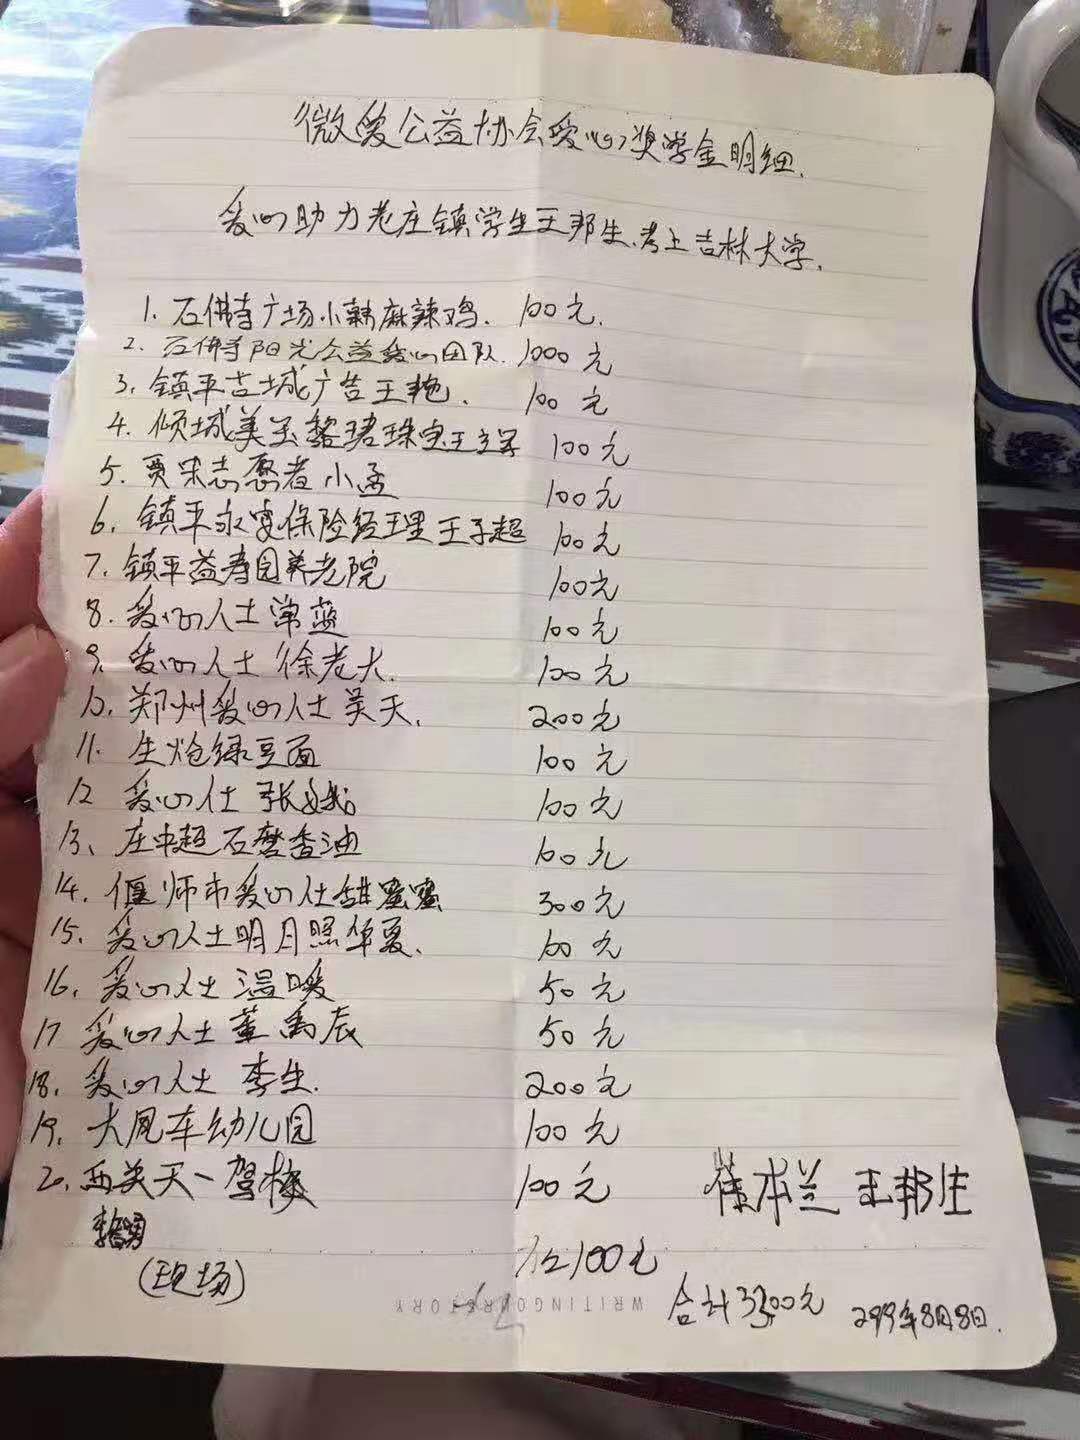 微爱公益协会爱心奖学金明细.
爱心助力老庄镇学生王邦生.考上吉林大学.
1. 石佛寺广场小韩麻辣鸡. 100元.
2. 石佛寺阳光公益爱心团队. 1000元
3. 镇平古城广告王艳. 100元
4. 倾城美玉黎珺珠宝王 100元
5. 贾宋志愿者小孟 100元
6. 镇平永安保险经理王子超 100元
7. 镇平益寿园养老院 100元
8. 爱心人士常蓝 100元
9. 爱心人士徐老大. 100元
10. 郑州爱心人士吴天. 200元
11. 生炝绿豆面 100元
12 爱心人士张 100元
13、庄中超石磨香油 100元
14. 偃师市爱心人士甜蜜蜜 300元
15. 爱心人士明月照华夏. 100元
16. 爱心人士温暖 50元
17 爱心人士董禹辰 50元
18. 爱心人士李生. 200元
19. 大风车幼儿园 100元
20. 西关天一驾校 100元 崔本兰 王邦生
100元
(现场)
合计3300元 8月8日.
WRITINGDIRECTORY